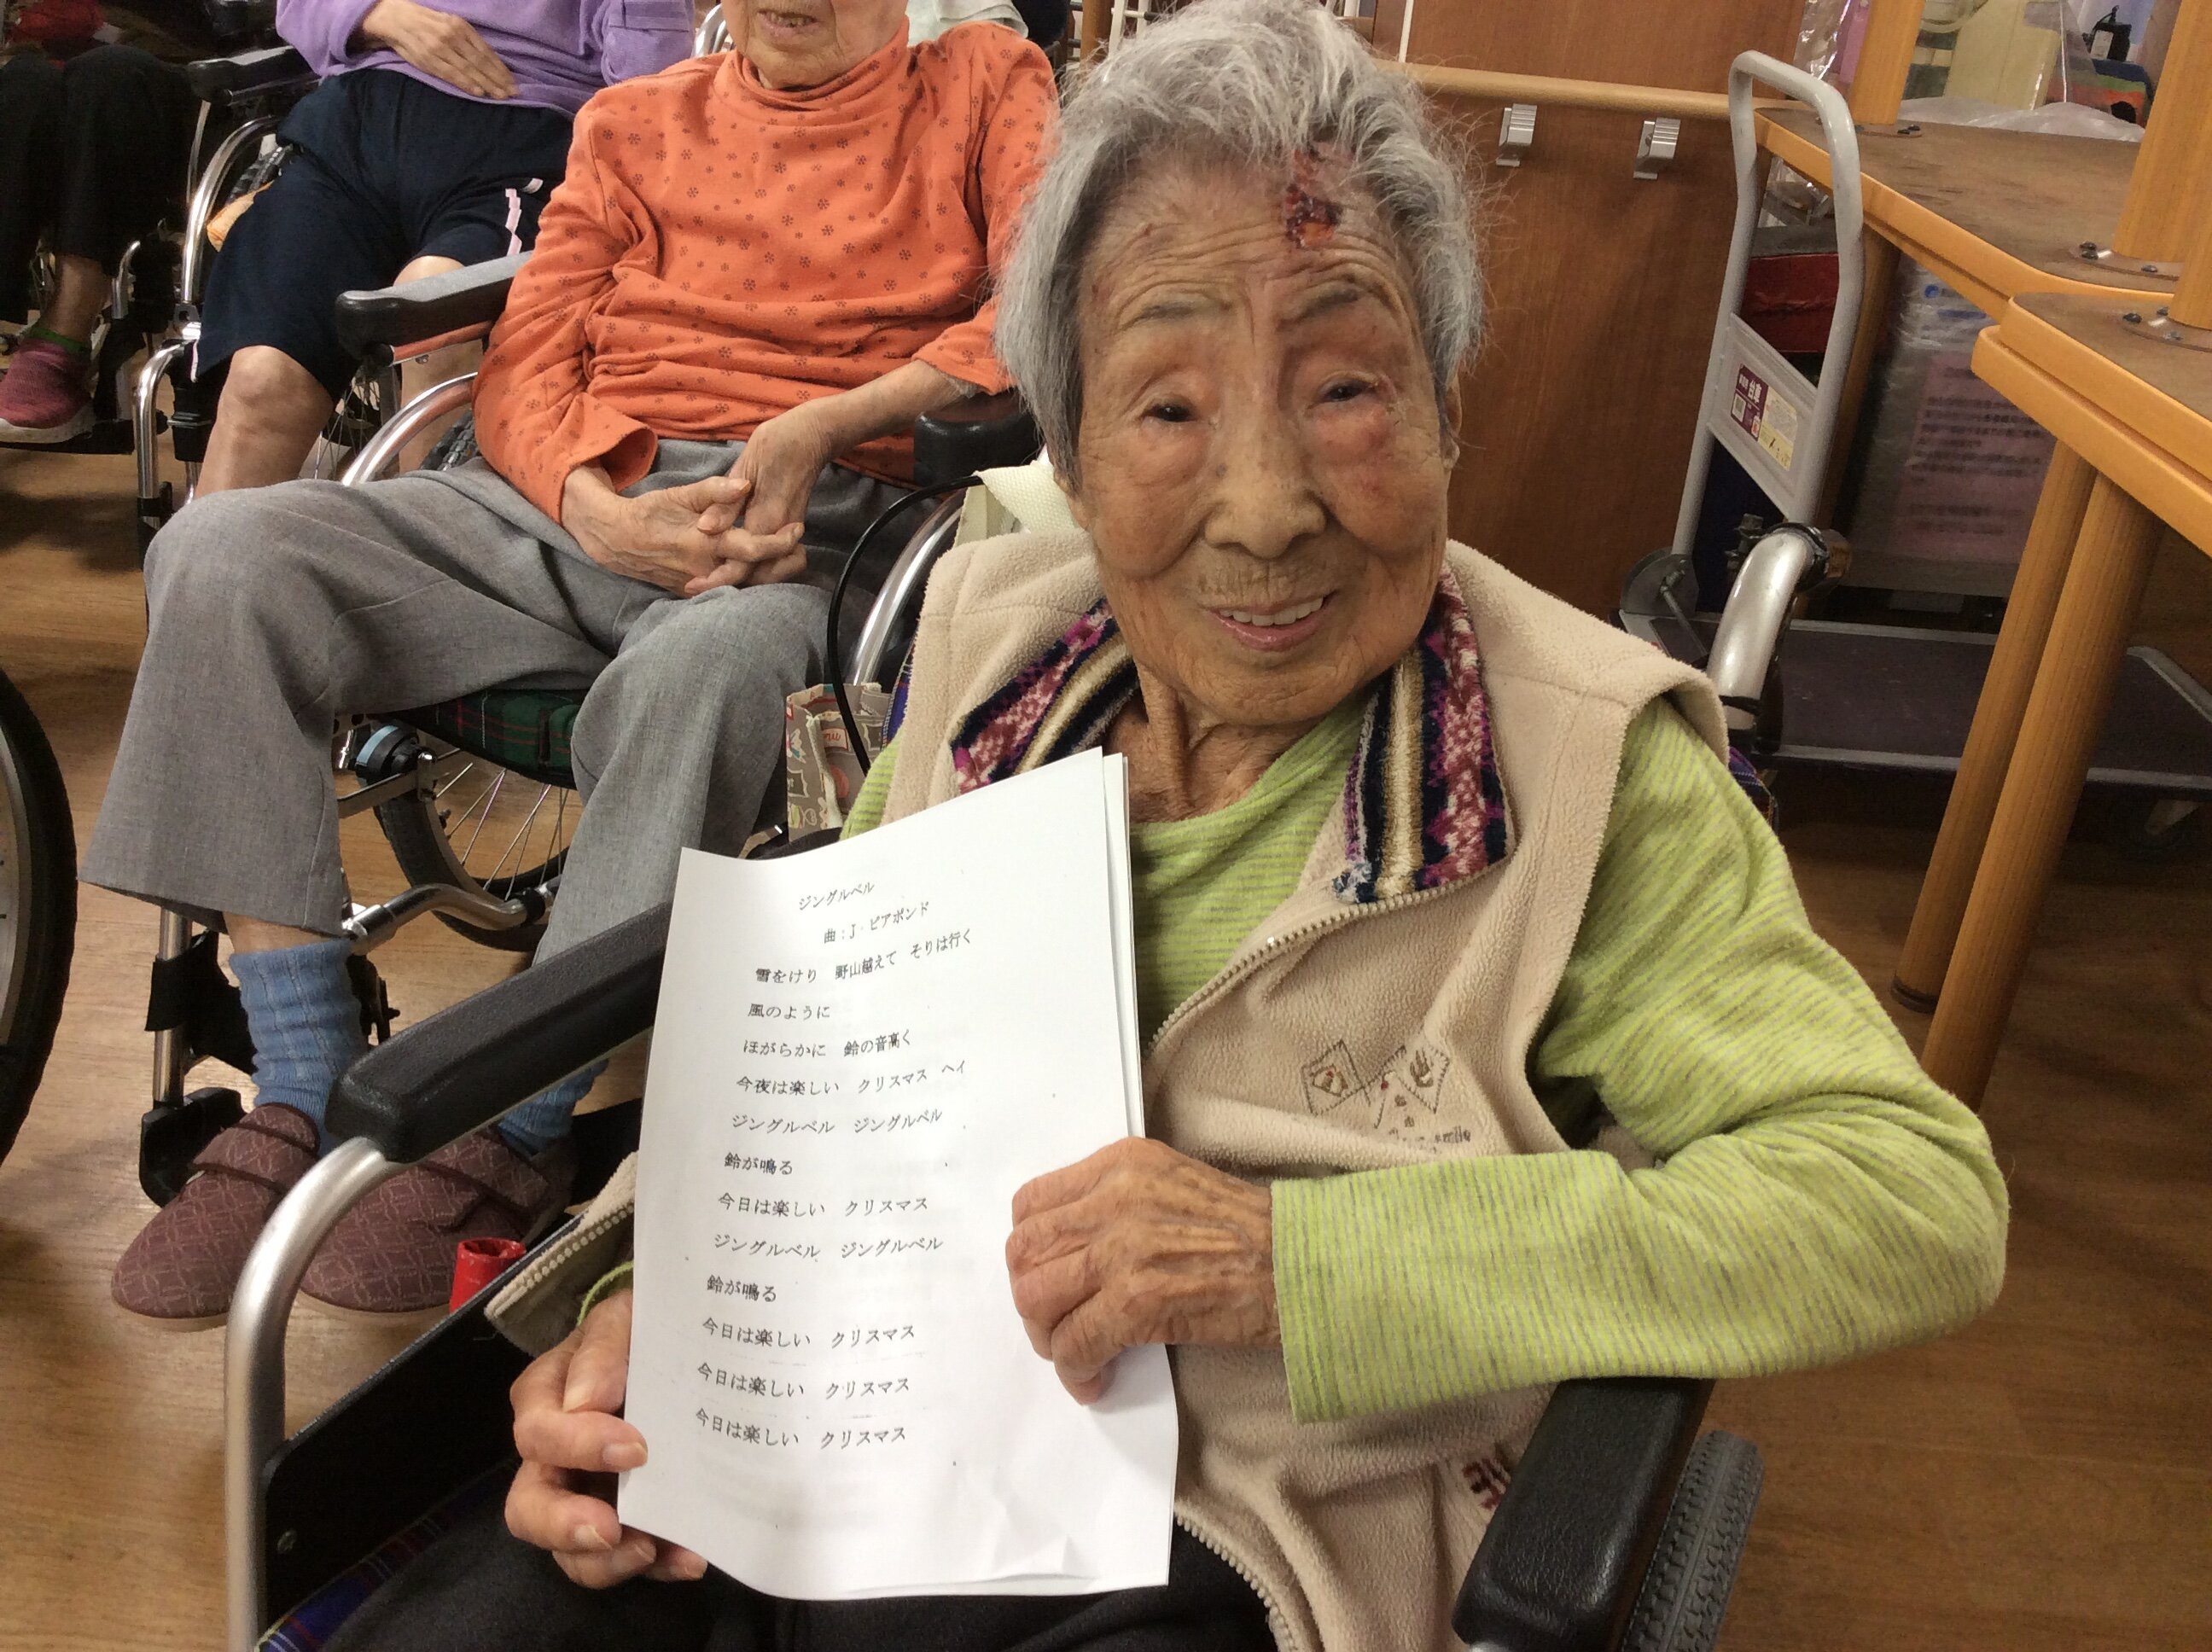 ジングルベル
曲：J・ピアポンド
雪をけり　野山越えて　そりは行く
風のように
ほがらかに　鈴の音高く
今夜は楽しい　クリスマス　ヘイ
ジングルベル　ジングルベル
鈴が鳴る
今日は楽しい　クリスマス
ジングルベル　ジングルベル
鈴が鳴る
今日は楽しい　クリスマス
今日は楽しい　クリスマス
今日は楽しい　クリスマス
台車